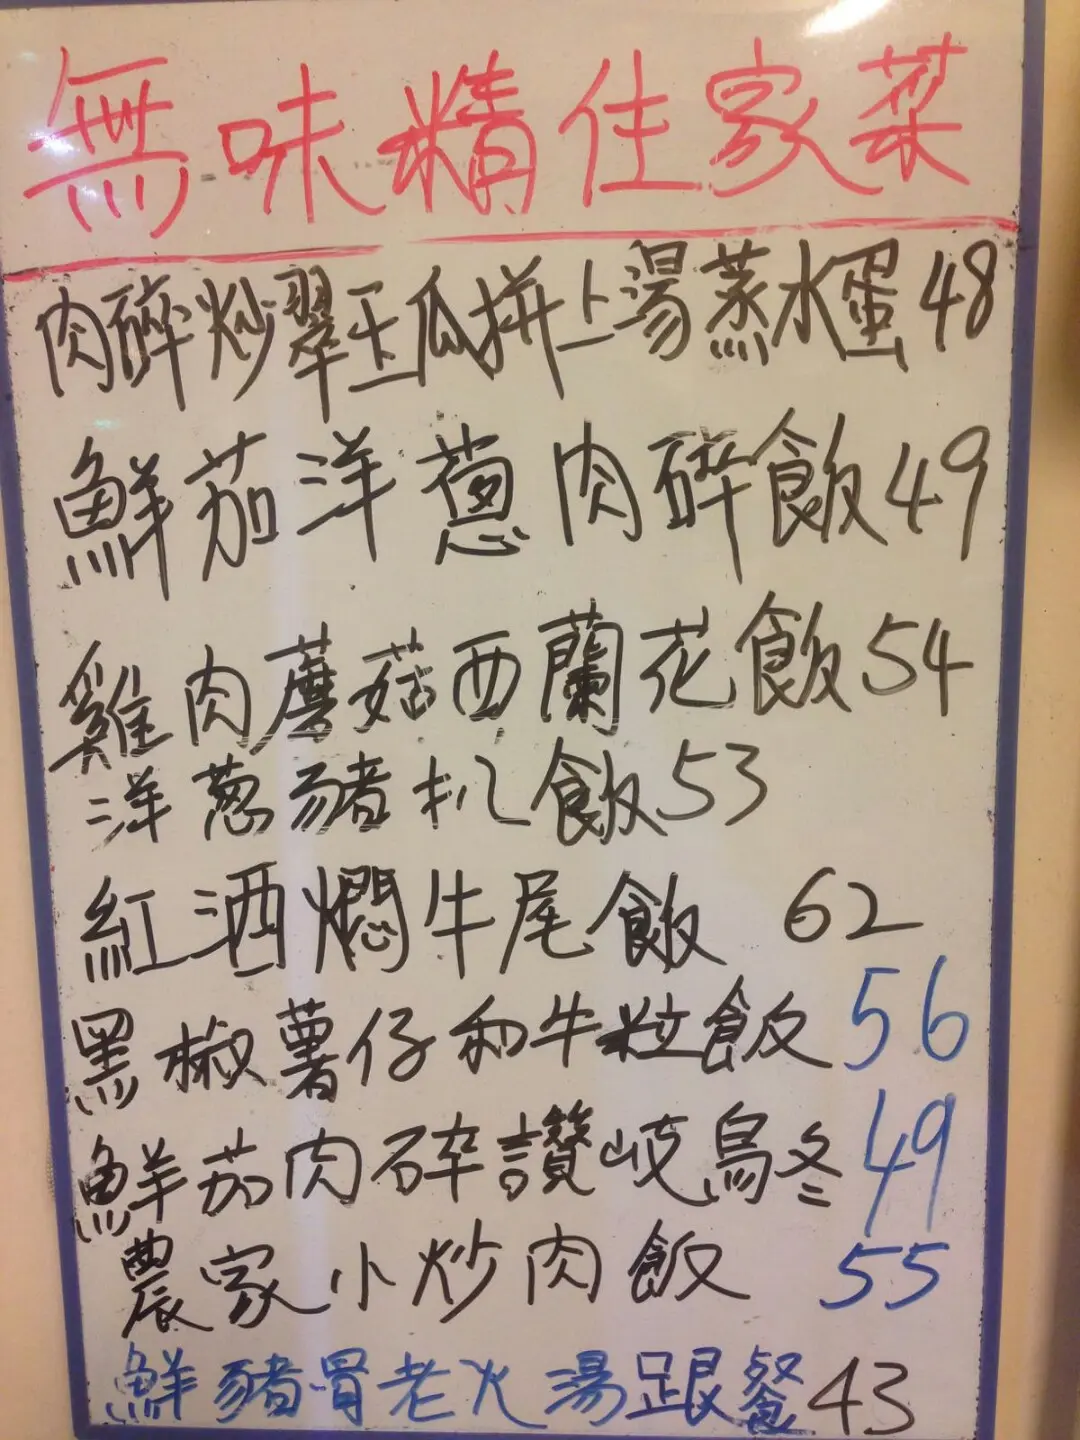 無味精住家菜
肉碎炒翠玉瓜拼上湯蒸水蛋48
鮮茄洋蔥肉碎飯49
雞肉蘑菇西蘭花飯54
洋蔥豬扒飯53
紅酒燜牛尾飯 62
黑椒薯仔和牛粒飯56
鮮茄肉碎讚岐烏冬49
農家小炒肉飯 55
鮮豬骨老火湯跟餐43